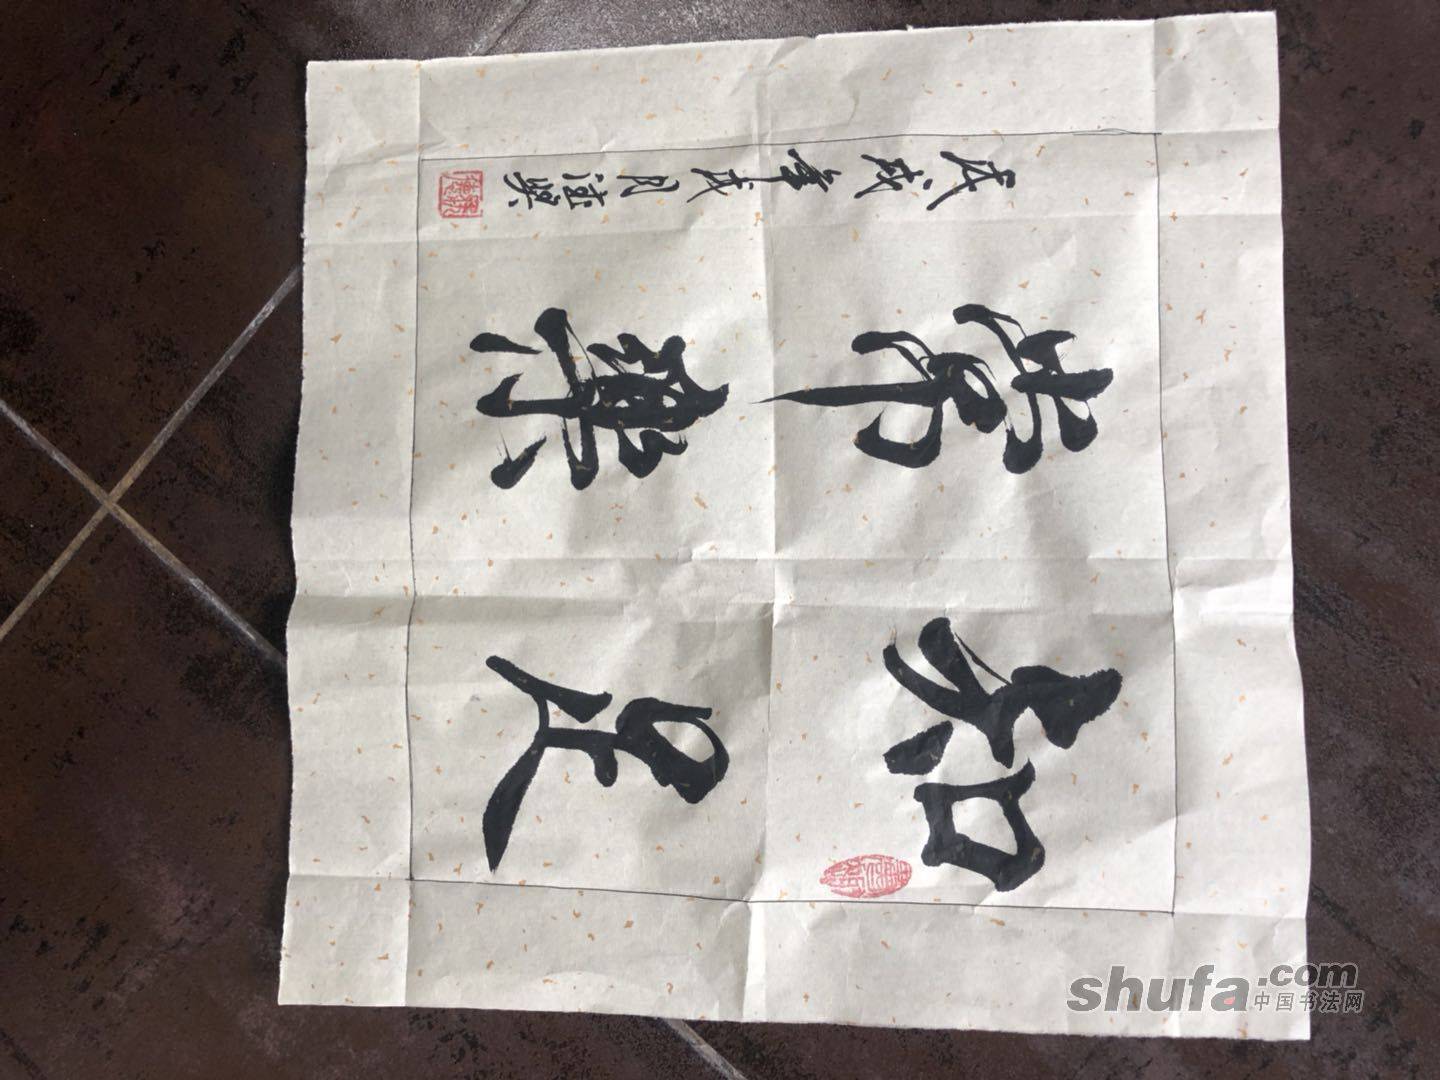 知足
常樂
戊戌年戌月
shufa.com
中国书法网